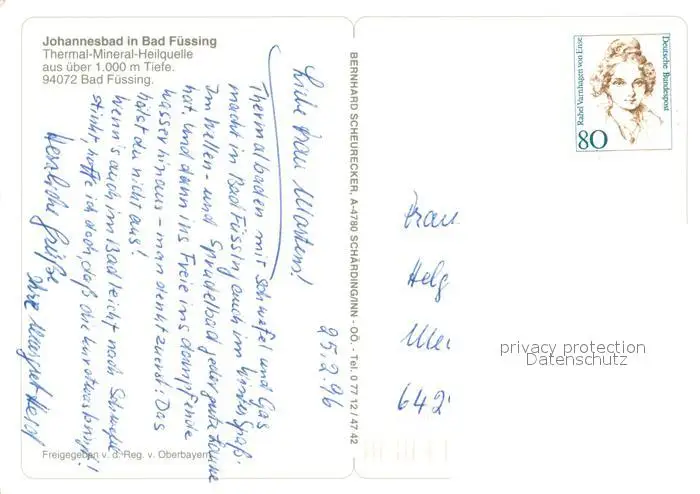 Johannesbad in Bad Füssing
Thermal-Mineral-Heilquelle
aus über 1.000 m Tiefe.
94072 Bad Füssing.
25.2.96
Liebe Frau
Thermalbaden mit Schwefel und Gas
macht in Bad Füssing auch im Winter Spaß.
Im Wellen- und Sprudelbad jeder gute Laune
hat, und dann ins Freie ins dampfende
Wasser hinaus - man denkt zuerst: Das
hälst du nicht aus!
Wenn's auch im Bad leicht nach Schwefel
stinkt, hoffe ich doch, daß die
Herzliche Grüße
Ihre Margret
Freigegeben v. d. Reg. v. Oberbayern
BERNHARD SCHEURECKER, A-4780 SCHÄRDING/INN - OÖ. - Tel. 0 77 12 / 47 42
Rahel Varnhagen von Ense
Deutsche Bundespost
80
Frau
Helg
642
privacy protection
Datenschutz